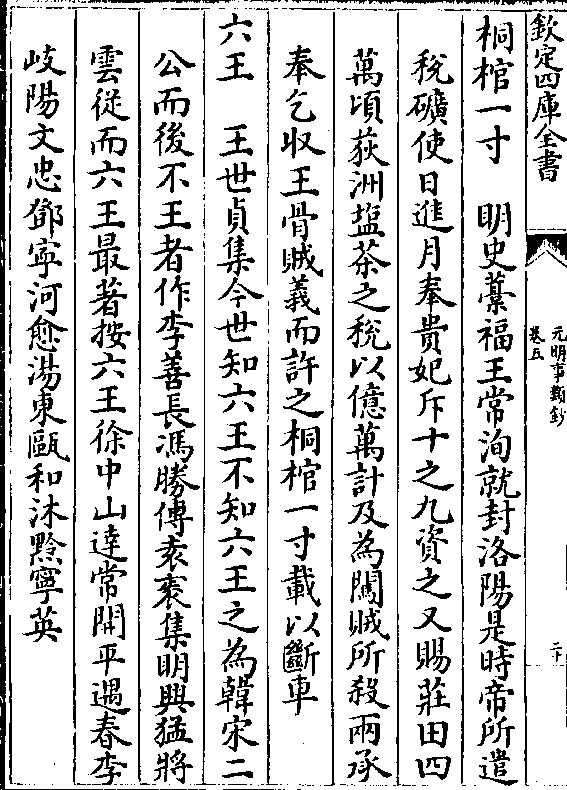 欽定四庫全書
元明事類鈔
卷五
二十
桐棺一寸　明史藁福王常洵就封洛陽是時帝所遣
稅礦使日進月奉貴妃斥十之九資之又賜莊田四
萬頃荻洲塩茶之稅以億萬計及為闖賊所殺兩承
奉乞収王骨賊義而許之桐棺一寸載以斷車
六王　王世貞集今世知六王不知六王之為韓宋二
公而後不王者作李善長馮勝傳袁袠集明興猛將
雲從而六王最著按六王徐中山達常開平遇春李
岐陽文忠鄧寜河愈湯東甌和沐黔寧英